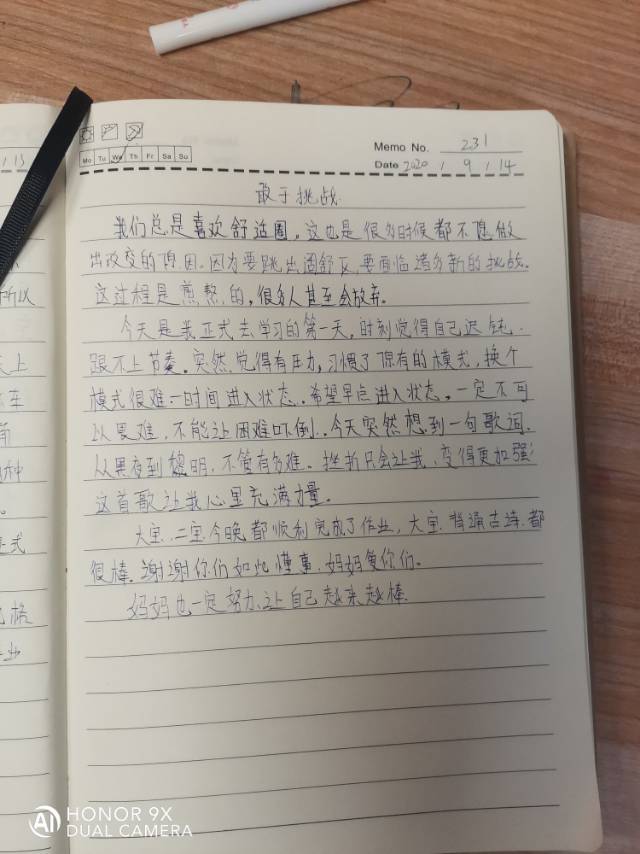 Memo No. 231
Mo Tu We Th Fr Sa Su
Date 2020 / 9 / 14
敢于挑战
我们总是喜欢舒适圈,这也是很多时候都不愿做
出改变的原因。因为要跳出圈舒区,要面临诸多新的挑战.
这过程是煎熬的,很多人甚至会放弃。
今天是我正式去学习的第一天,时刻觉得自己迟钝.
跟不上节奏。突然觉得有压力,习惯了原有的模式,换个
模式很难一时间进入状态.希望早点进入状态。一定不可
以畏难,不能让困难吓倒.今天突然想到一句歌词.
从黑夜到黎明,不管有多难。挫折只会让我、变得更加强!
这首歌让我心里充满力量。
大宝、二宝今晚都顺利完成了作业,大宝背诵古诗都
很棒。谢谢你们如此懂事.妈妈爱你们。
妈妈也一定努力,让自己越来越棒.
/ 13
所以
上
车
种
式
格
业
HONOR 9X
DUAL CAMERA
AI